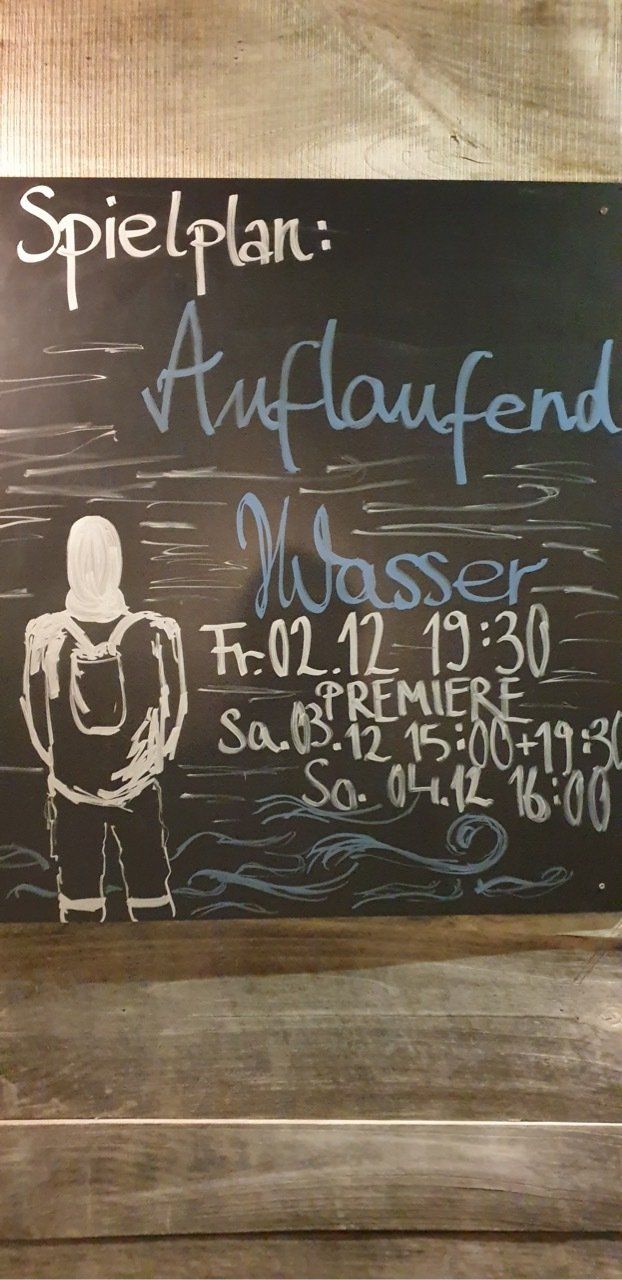 Spielplan:
Auflaufend
Wasser
Fr. 02.12 19:30
PREMIERE
Sa. 03.12 15:00+19:30
So. 04.12 16:00